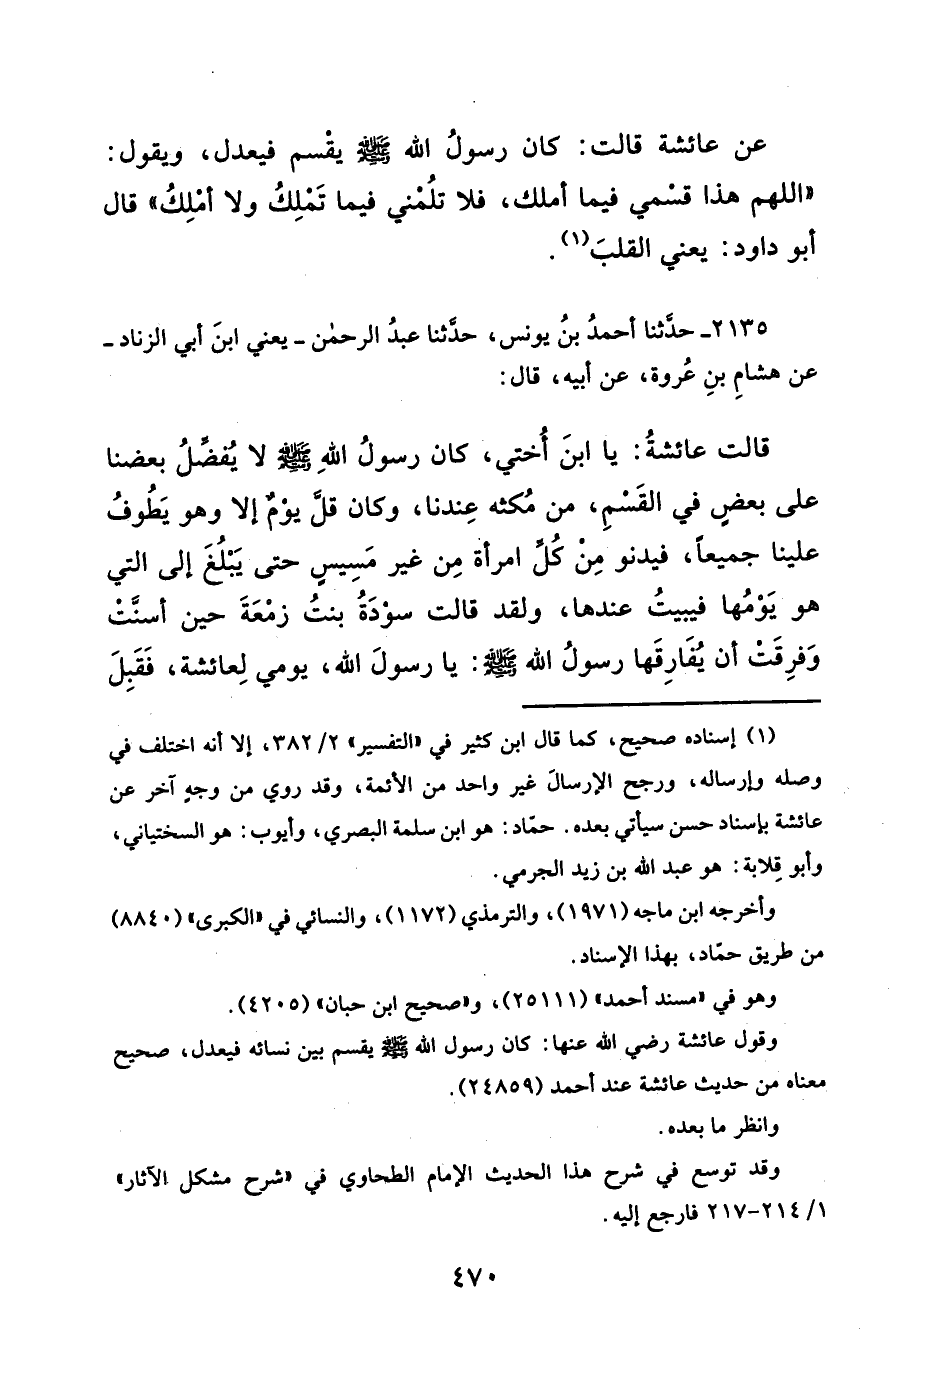 عن عائشة قالت: كان رسولُ الله ﷺ يقْسم فيعدل، ويقول:
«اللهم هذا قسْمي فيما أملك، فلا تلُمْني فيما تَمْلِكُ ولا أمْلِكُ» قال
أبو داود: يعني القلبَ(١).
٢١٣٥ـ حدَّثنا أحمدُ بنُ يونس، حدَّثنا عبدُ الرحمٰن ـ يعني ابنَ أبي الزناد ـ
عن هشامِ بنِ عُروة، عن أبيه، قال:
قالت عائشةُ: يا ابنَ أُختي، كان رسولُ اللهِ ﷺ لا يُفضِّلُ بعضنا
على بعضٍ في القَسْمِ، من مُكثه عِندنا، وكان قلَّ يوْمٌ إلا وهو يَطُوفُ
علينا جميعاً، فيدنو مِنْ كُلِّ امرأة مِن غير مَسِيسٍ حتى يَبْلُغَ إلى التي
هو يَوْمُها فيبيتُ عندها، ولقد قالت سوْدَةُ بنتُ زمْعَةَ حين أسنَّتْ
وَفرِقَتْ أن يُفَارِقَها رسولُ الله ﷺ: يا رسولَ الله، يومي لِعائشة، فَقَبِلَ
(١) إسناده صحيح، كما قال ابن كثير في «التفسير» ٢/ ٣٨٢، إلا أنه اختلف في
وصله وإرساله، ورجح الإرسالَ غير واحد من الأئمة، وقد روي من وجهٍ آخر عن
عائشة بإسناد حسن سيأتي بعده. حمّاد: هو ابن سلمة البصري، وأيوب: هو السختياني،
وأبو قِلابة: هو عبد الله بن زيد الجرمي.
وأخرجه ابن ماجه (١٩٧١)، والترمذي (١١٧٢)، والنسائي في «الكبرى» (٨٨٤٠)
من طريق حمّاد، بهذا الإسناد.
وهو في «مسند أحمد» (٢٥١١١)، و«صحيح ابن حبان» (٤٢٠٥).
وقول عائشة رضي الله عنها: كان رسول الله ﷺ يقسم بين نسائه فيعدل، صحيح
معناه من حديث عائشة عند أحمد (٢٤٨٥٩).
وانظر ما بعده.
وقد توسع في شرح هذا الحديث الإمام الطحاوي في «شرح مشكل الآثار»
١/ ٢١٤-٢١٧ فارجع إليه.
٤٧٠